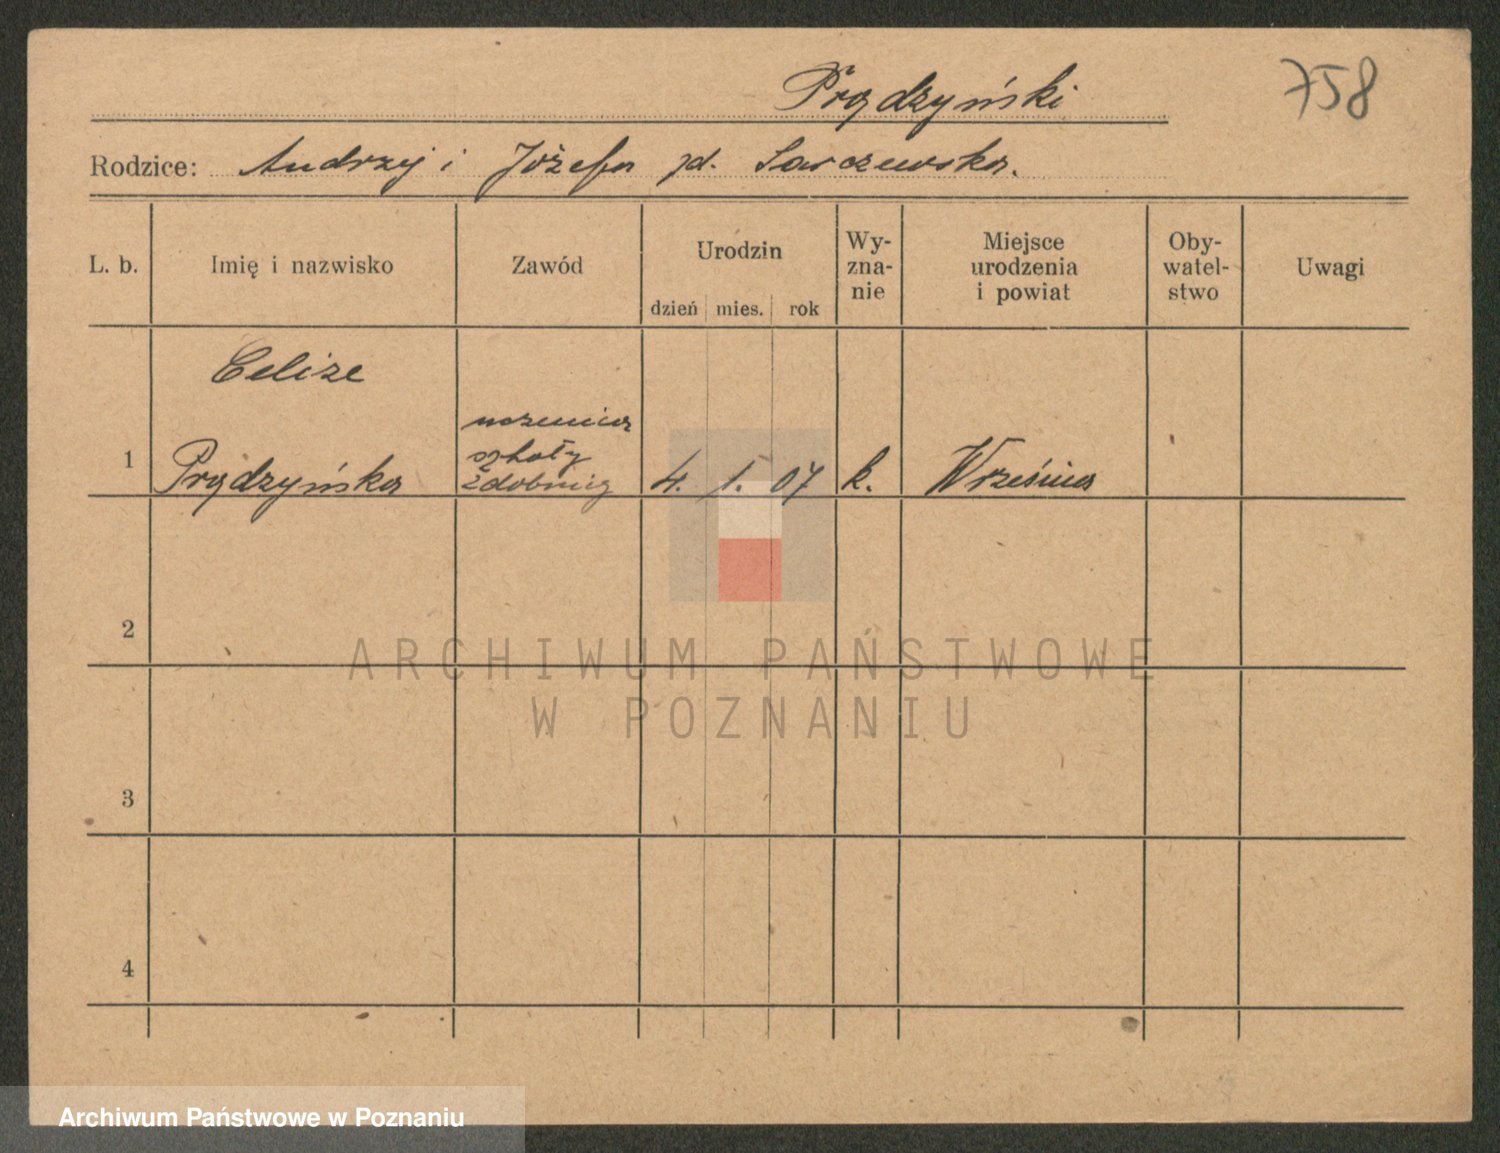 Prądzyński
758
Rodzice: Andrzej i Józefa zd. Sarczewska.
L. b. Imię i nazwisko Zawód Urodzin Wy-zna-nie Miejsce urodzenia i powiat Oby-watel-stwo Uwagi
dzień mies. rok
Celize
uczenica
szkoły
1 Prądzyńska zdobnicz 4. 1. 07 k. Września
2
ARCHIWUM PAŃSTWOWE
W POZNANIU
3
4
Archiwum Państwowe w Poznaniu